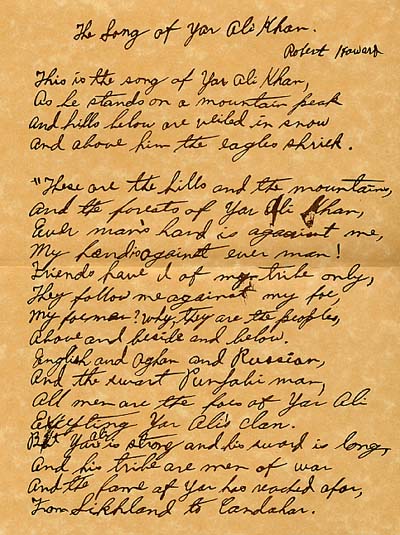 The Song of Yar Ali Khan.
Robert Howard
This is the song of Yar Ali Khan,
As he stands on a mountain peak
And hills below are veiled in snow
And above him the eagles shriek.
"These are the hills and the mountains,
And the forests of Yar Ali Khan,
Ever man's hand is against me,
My hand is against ever man!
Friends have I of my tribe only,
They follow me against my foe,
My foeman? why, they are the peoples,
Above and beside and below.
English and Afghan and Russian,
And the swart Punjabi man,
All men are the foes of Yar Ali
Excepting Yar Ali's clan.
But Yar is strong and his sword is long,
And his tribe are men of war
And the fame of Yar has reached afar,
From Sikhland to Candahar.